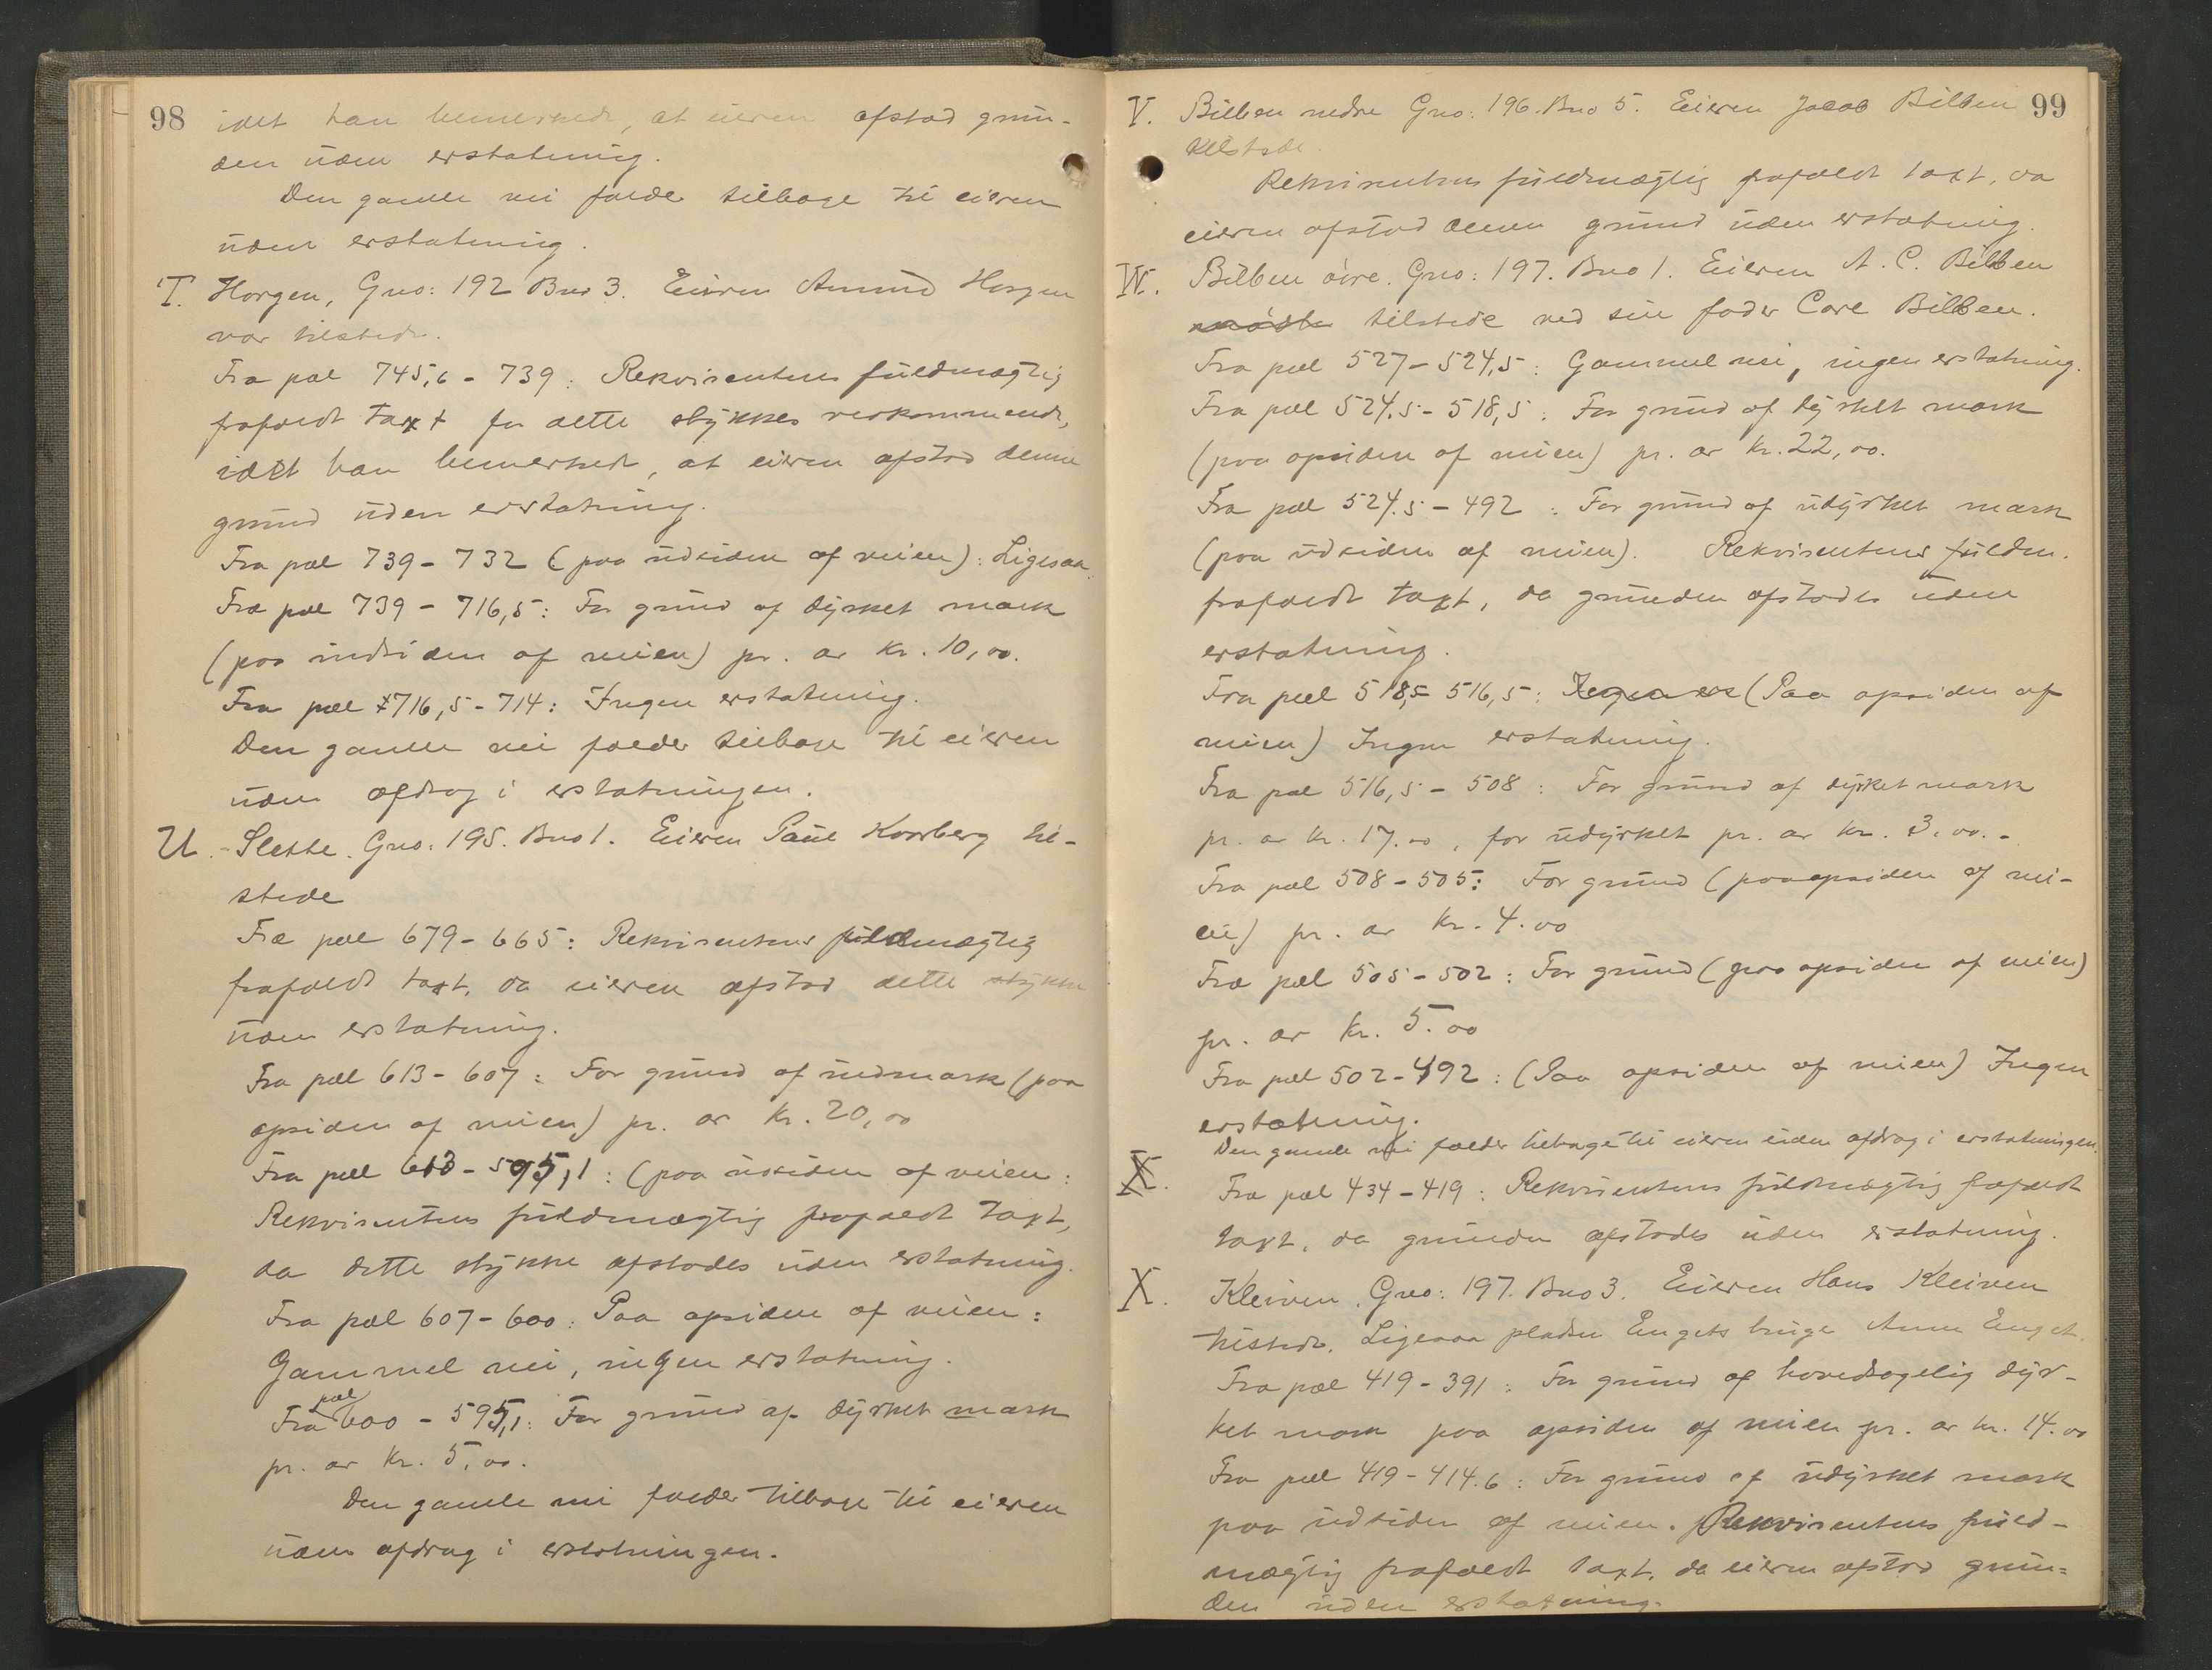 98
idet han bemerkede, at eieren afstod grun-
den uden erstatning.
Den gamle vei falder tilbage til eieren
uden erstatning.
T. Horgen, Gno: 192 Bno 3. Eieren Amund Horgen
var tilstede.
Fra pæl 745,6 - 739: Rekvirentens fuldmægtig
frafaldt taxt for dette stykkes vedkommende,
idet han bemerket, at eieren afstod denne
grund uden erstatning.
Fra pæl 739 - 732 (paa udsiden af veien): Ligesaa.
Fra pæl 739 - 716,5: For grund af dyrket mark
(paa indsiden af veien) pr. ar kr. 10,00.
Fra pæl 716,5 - 714: Ingen erstatning.
Den gamle vei falder tilbage til eieren
uden afdrag i erstatningen.
U. - Slette. Gno: 195. Bno 1. Eieren Paul Kvarberg til-
stede
Fra pæl 679 - 665: Rekvirentens fuldmægtig
frafaldt taxt, da eieren afstod dette stykke
uden erstatning.
Fra pæl 613 - 607: For grund af indmark (paa
opsiden af veien) pr. ar kr. 20,00
Fra pæl 613 - 595,1: (paa udsiden af veien:
Rekvirentens fuldmægtig frafaldt taxt,
da dette stykke afstodes uden erstatning.
Fra pæl 607 - 600: Paa opsiden af veien:
Gammel vei, ingen erstatning.
Fra pæl 600 - 595,1: For grund af dyrket mark
pr. ar kr. 5,00.
Den gamle vei falder tilbage til eieren
uden afdrag i erstatningen.
99
V. Bilben nedre Gno: 196. Bno 5. Eieren Jacob Bilben
tilstede.
Rekvirentens fuldmægtig frafaldt taxt, da
eieren afstod denne grund uden erstatning.
W. Bilben øvre. Gno: 197. Bno 1. Eieren A. C. Bilben
mødte tilstede ved sin fader Carl Bilben.
Fra pæl 527 - 524,5: Gammel vei, ingen erstatning.
Fra pæl 524.5 - 518,5: For grund af dyrket mark
(paa opsiden af veien) pr. ar kr. 22,00.
Fra pæl 524.5 - 492: For grund af udyrket mark
(paa udsiden af veien). Rekvirentens fuldm.
frafaldt taxt, da grunden afstodes uden
erstatning.
Fra pæl 518,5 - 516,5: (Paa opsiden af
veien) Ingen erstatning.
Fra pæl 516,5 - 508: For grund af dyrket mark
pr. ar kr. 17.00, for udyrket pr. ar kr. 3.00.-
Fra pæl 508 - 505: For grund (paa opsiden af vei-
en) pr. ar kr. 4.00
Fra pæl 505 - 502: For grund (paa opsiden af veien)
pr. ar kr. 5.00
Fra pæl 502 - 492: (Paa opsiden af veien) Ingen
erstatning.
Den gamle vei falder tilbage til eieren uden afdrag i erstatningen.
X. Fra pæl 434 - 419: Rekvirentens fuldmægtig frafaldt
taxt, da grunden afstodes uden erstatning.
X. Kleiven, Gno: 197. Bno 3. Eieren Hans Kleiven
tilstede. Ligesaa pladsen Engets Anne Enget.
Fra pæl 419 - 391: For grund af hovedsagelig dyr-
ket mark paa opsiden af veien pr. ar kr. 14.00
Fra pæl 419 - 414.6: For grund af udyrket mark
paa udsiden af veien. Rekvirentens fuld-
mægtig frafaldt taxt, da eieren afstod grun-
den uden erstatning.